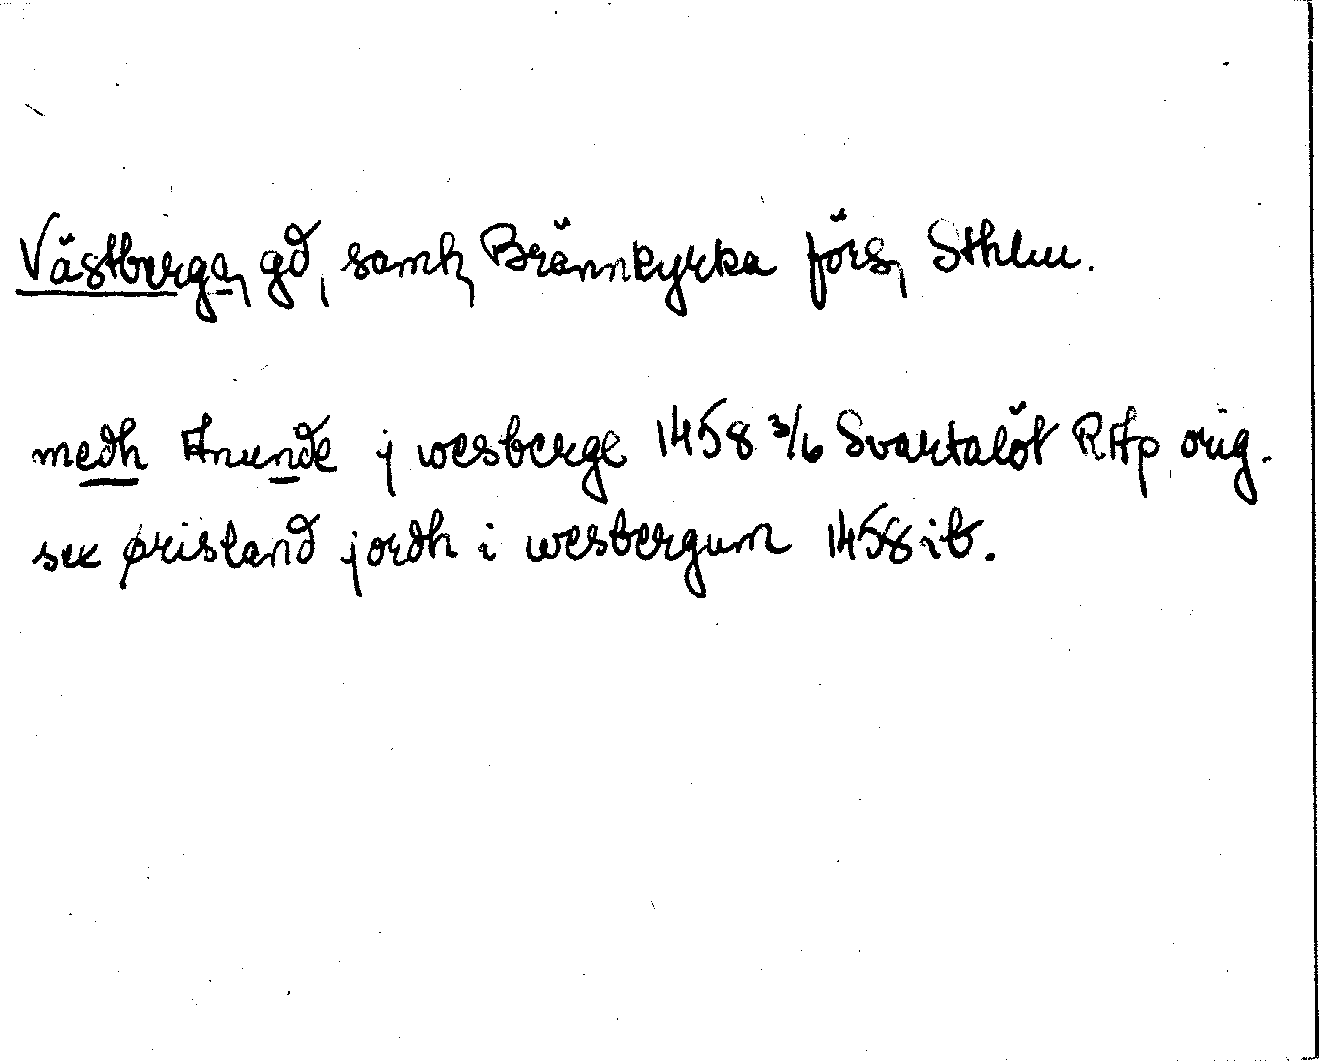 Västberga, gd, samh, Brännkyrka förs, Sthlm.
medh Anunde j wesberge 1458 3/6 Svartalöt RAp orig.
sexørisland jordh i wesbergum 1458 ib.